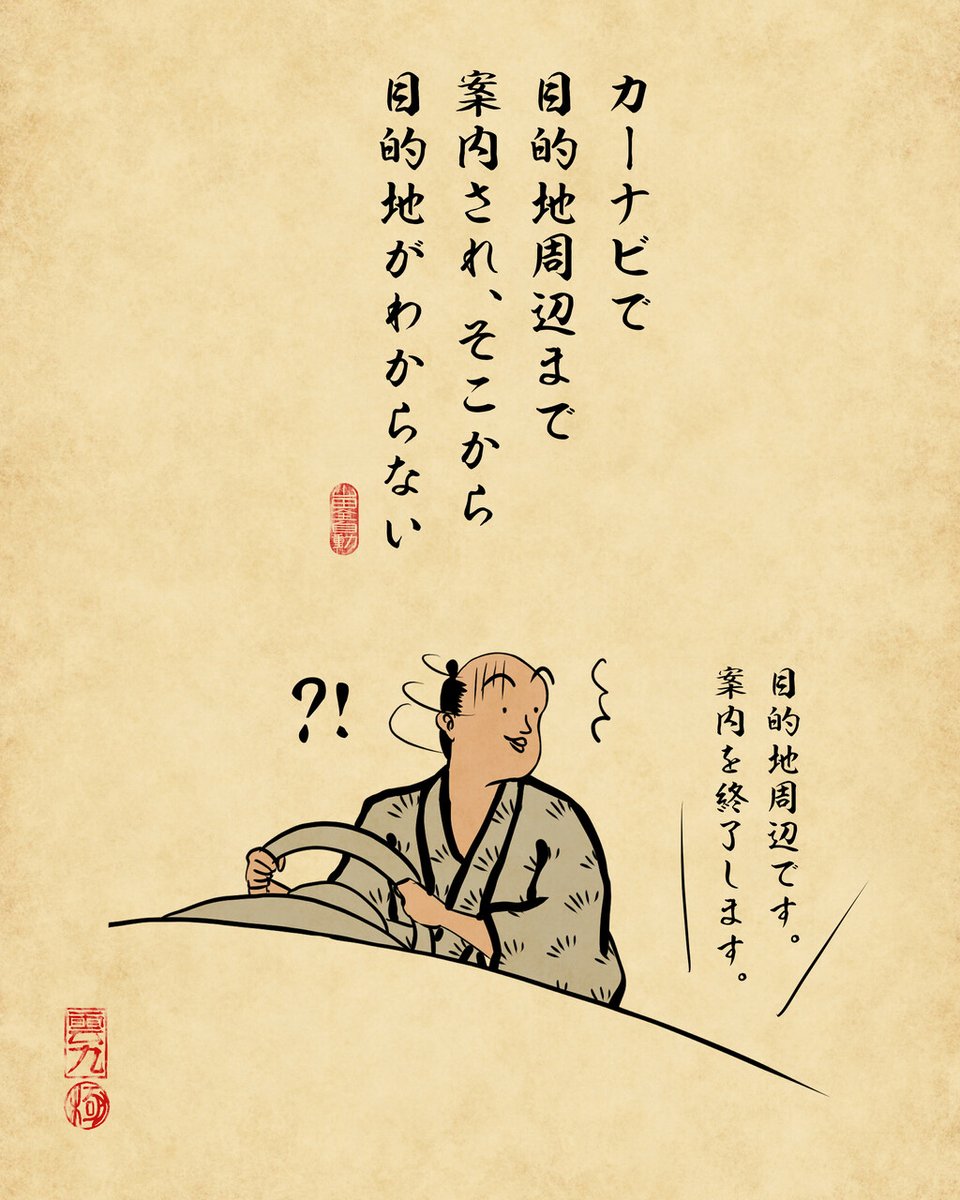 カーナビで
目的地周辺まで
案内され、そこから
目的地がわからない
?!
目的地周辺です。
案内を終了します。